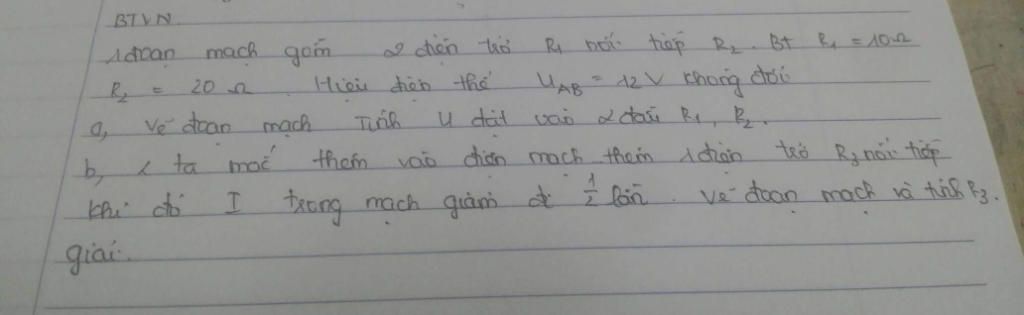 BTVN.
1 đoạn mạch gồm 2 điện trở R1 nối tiếp R2. Bt R1 = 10 Ω
R2 = 20 Ω. Hiệu điện thế UAB = 12 V không đổi
a, Vẽ đoạn mạch Tính U đặt vào 2 đầu R1, R2.
b, ta mắc thêm vào điện mạch thêm 1 điện trở R3 nối tiếp
khi đó I trong mạch giảm đi 1/2 lần. Vẽ đoạn mạch và tính R3.
giải.